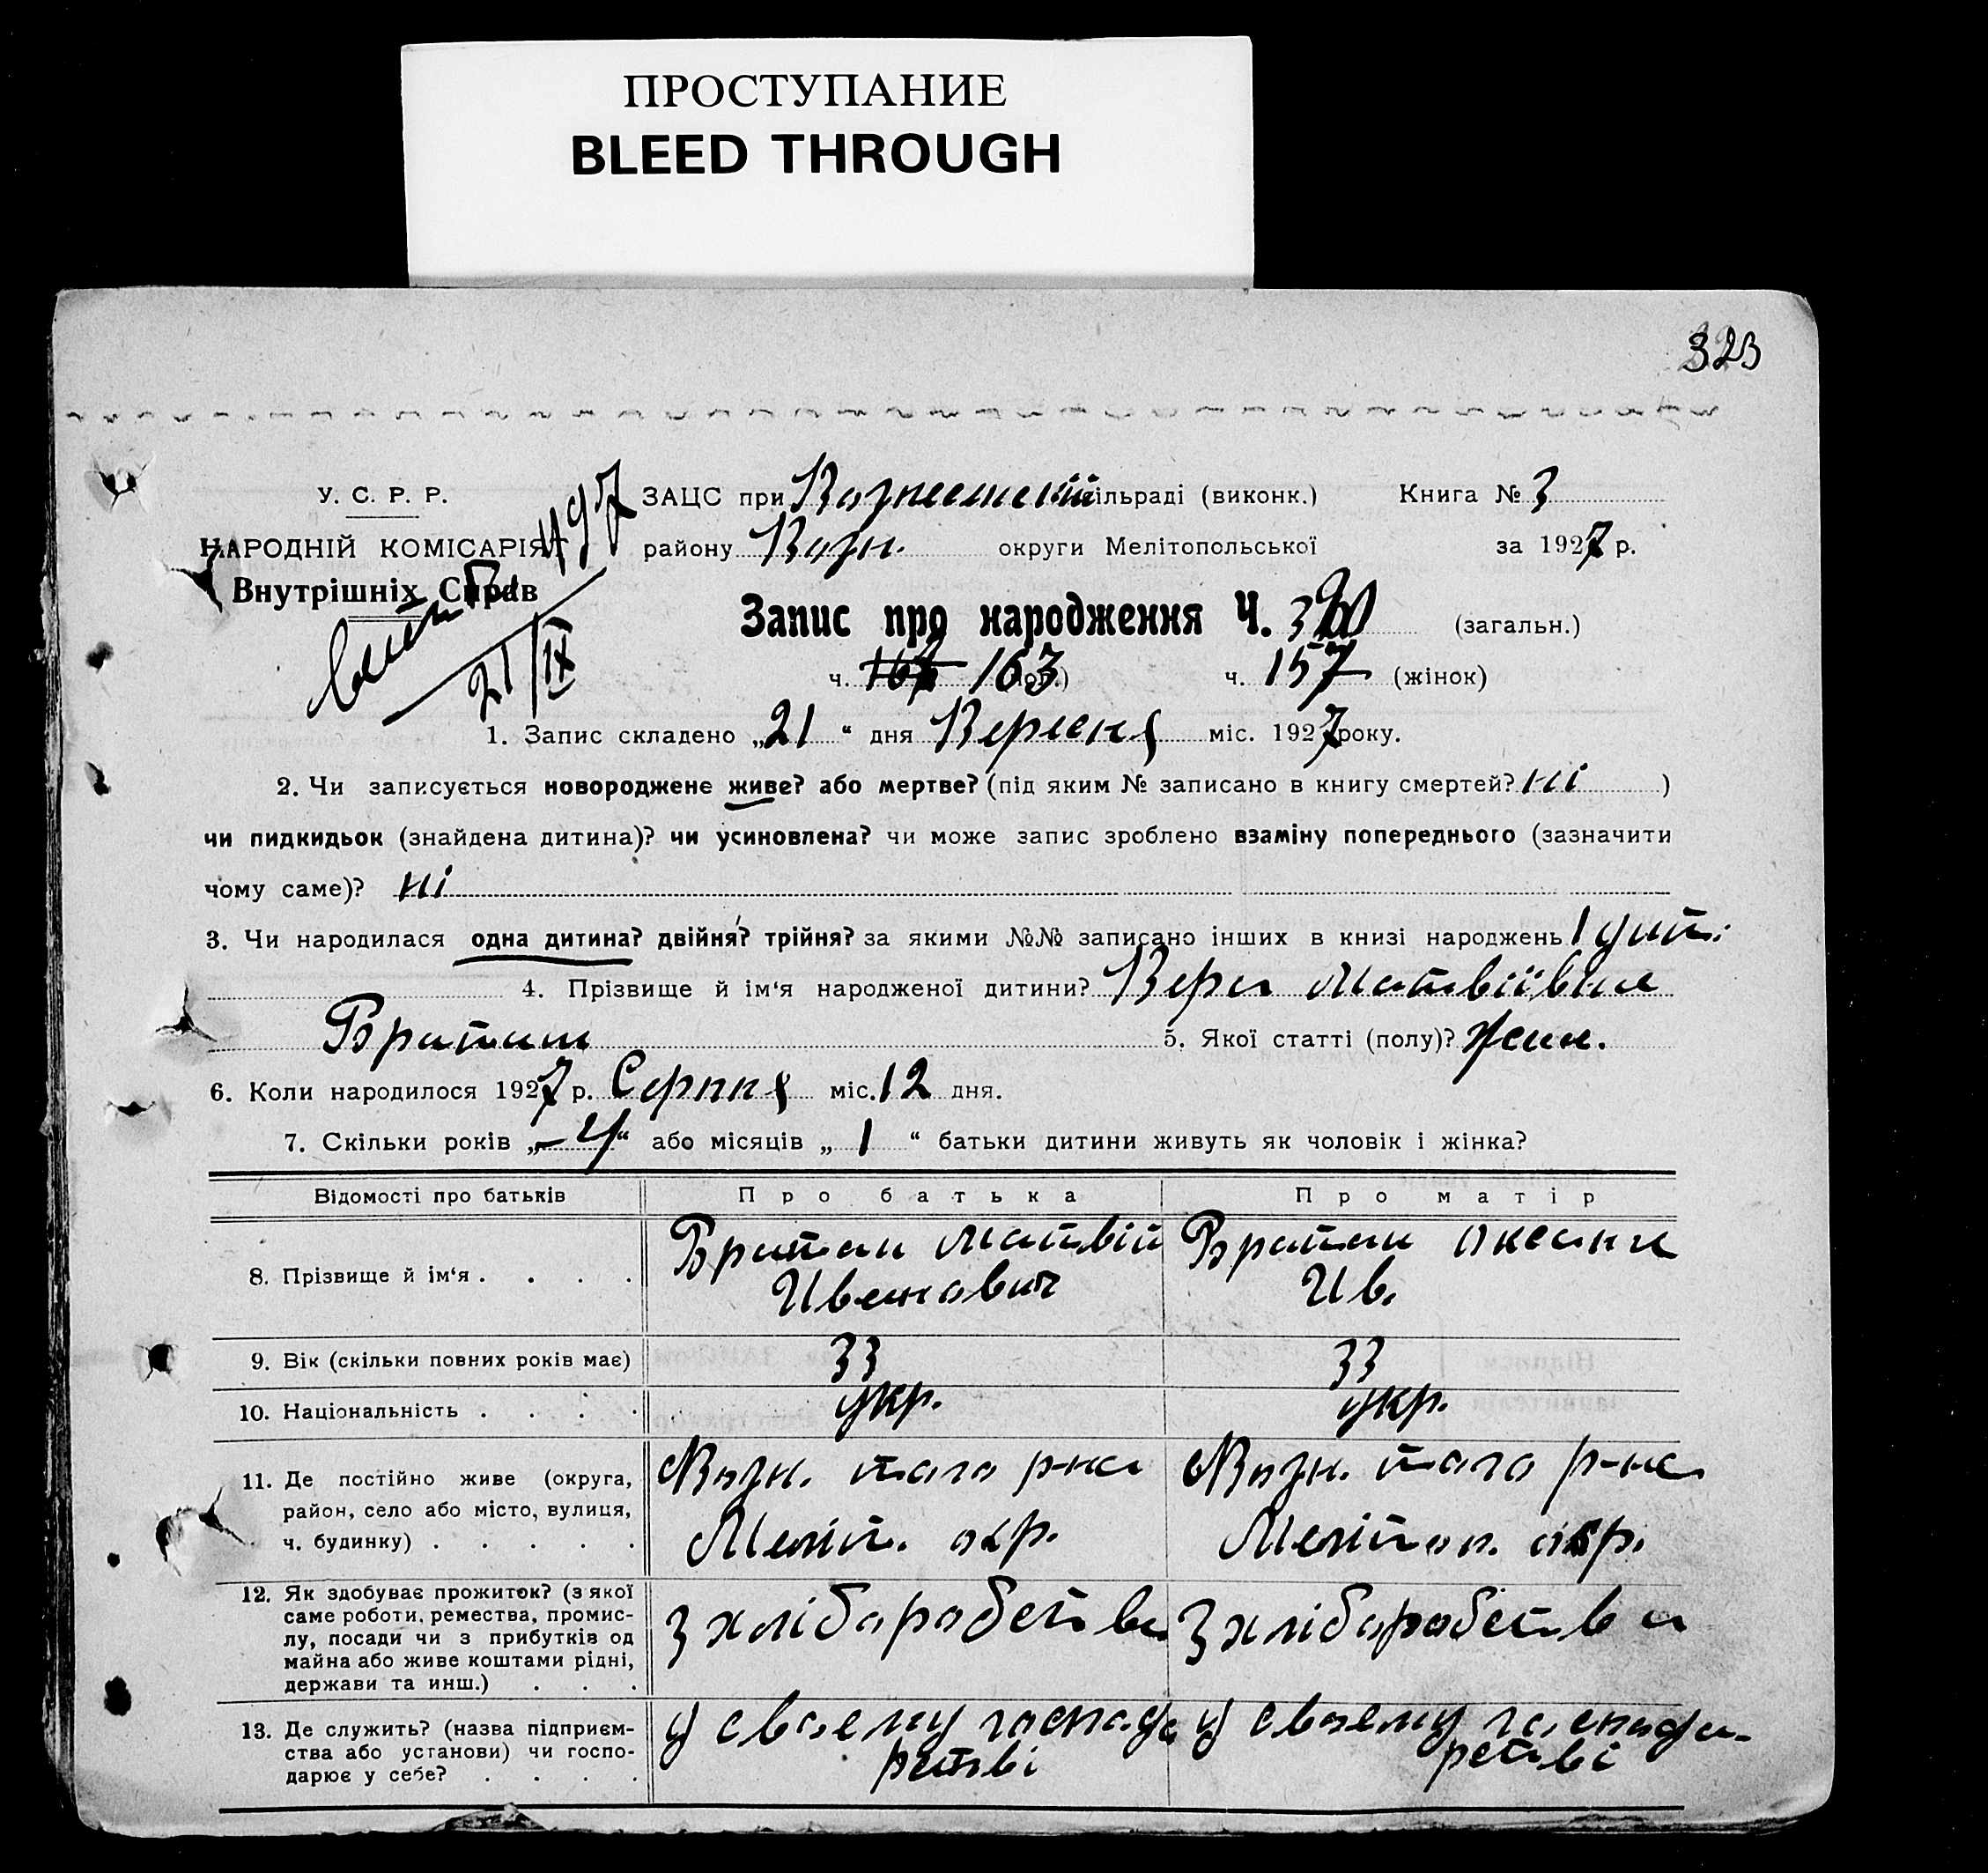 ПРОСТУПАНИЕ
BLEED THROUGH
323
У. С. Р. Р.
НАРОДНІЙ КОМІСАРІЯТ
Внутрішніх Справ
497
21/IX
ЗАЦС при Вознесенскій сільраді (виконк.) Книга № 3
району Возн. округи Мелітопольської за 1927 р.
Запис про народження Ч. 320 (загальн.)
ч. 163 ч. 157 (жінок)
1. Запис складено „21“ дня Вересня міс. 1927 року.
2. Чи записується новороджене живе? або мертве? (під яким № записано в книгу смертей? ні )
чи пидкидьок (знайдена дитина)? чи усиновлена? чи може запис зроблено взаміну попереднього (зазначити
чому саме)? ні
3. Чи народилася одна дитина? двійня? трійня? за якими №№ записано інших в книзі народжень 1 дит.
4. Прізвище й ім‘я народженої дитини? Вера Матвіївна
Братан 5. Якої статті (полу)? Жен.
6. Коли народилося 1927 р. Серпня міс. 12 дня.
7. Скільки років „—4“ або місяців „ 1 “ батьки дитини живуть як чоловік і жінка?
Відомості про батьків Про батька Про матір
8. Прізвище й ім‘я . . . . Братан Матвій Иванович Братан Оксана Ив.
9. Вік (скільки повних років має) 33 33
10. Національність . . . . укр. укр.
11. Де постійно живе (округа,
район, село або місто, вулиця,
ч. будинку) . . . . .
Возн. того р-на
Меліт. окр.
Возн. того р-на
Мелітоп. окр.
12. Як здобуває прожиток? (з якої
саме роботи, ремества, промис-
лу, посади чи з прибутків од
майна або живе коштами рідні,
держави та инш.) . . .
З хліборобства З хліборобства
13. Де служить? (назва підприєм-
ства або установи) чи госпо-
дарює у себе? . . . .
У своему господа
рстві
У своему господа-
рстві